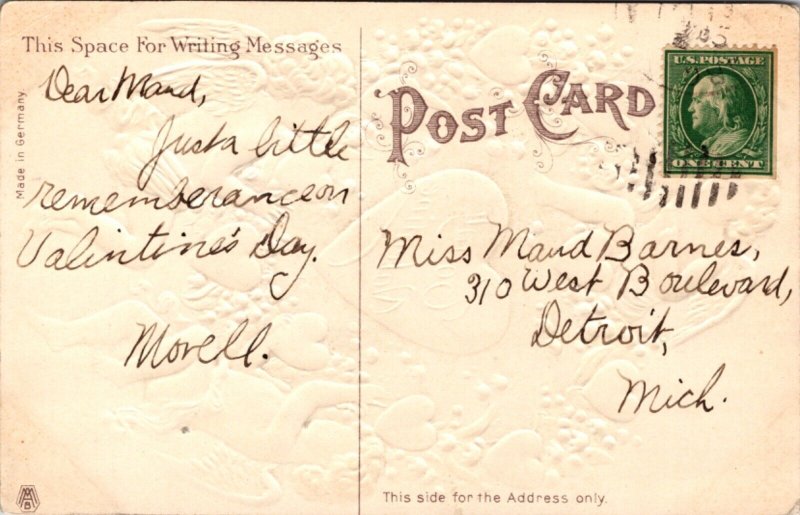 This Space For Writing Messages
Dear Maud,
Just a little
rememberance on
Valintine's Day.
Morell.
Made in Germany
POST CARD
U.S. POSTAGE
ONE CENT
Miss Maud Barnes,
310 West Boulevard,
Detroit,
Mich.
This side for the Address only.